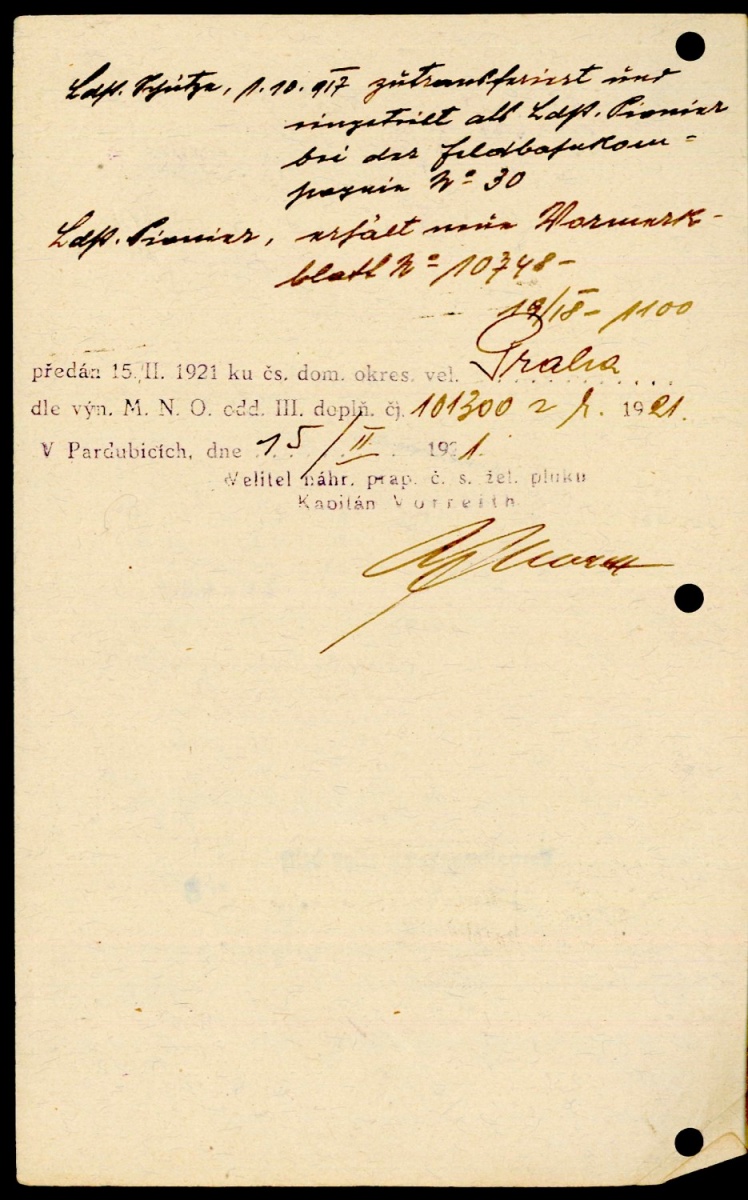 Ldst. Schütze, 1.10.917 zutransferiert und
eingeteilt als Ldst. Pionier
bei der Feldbahnkom-
pagnie No 30
Ldst. Pionier, erhält neue Vormerk-
blatt No 10748-
/18- 1100
předán 15./II. 1921 ku čs. dom. okres. vel. Praha
dle výn. M. N. O. odd. III. doplň. čj. 101300 z r. 1921.
V Pardubicích, dne 15/II. 1921.
Velitel náhr. prap. č. s. žel. pluku
Kapitán Vorreith